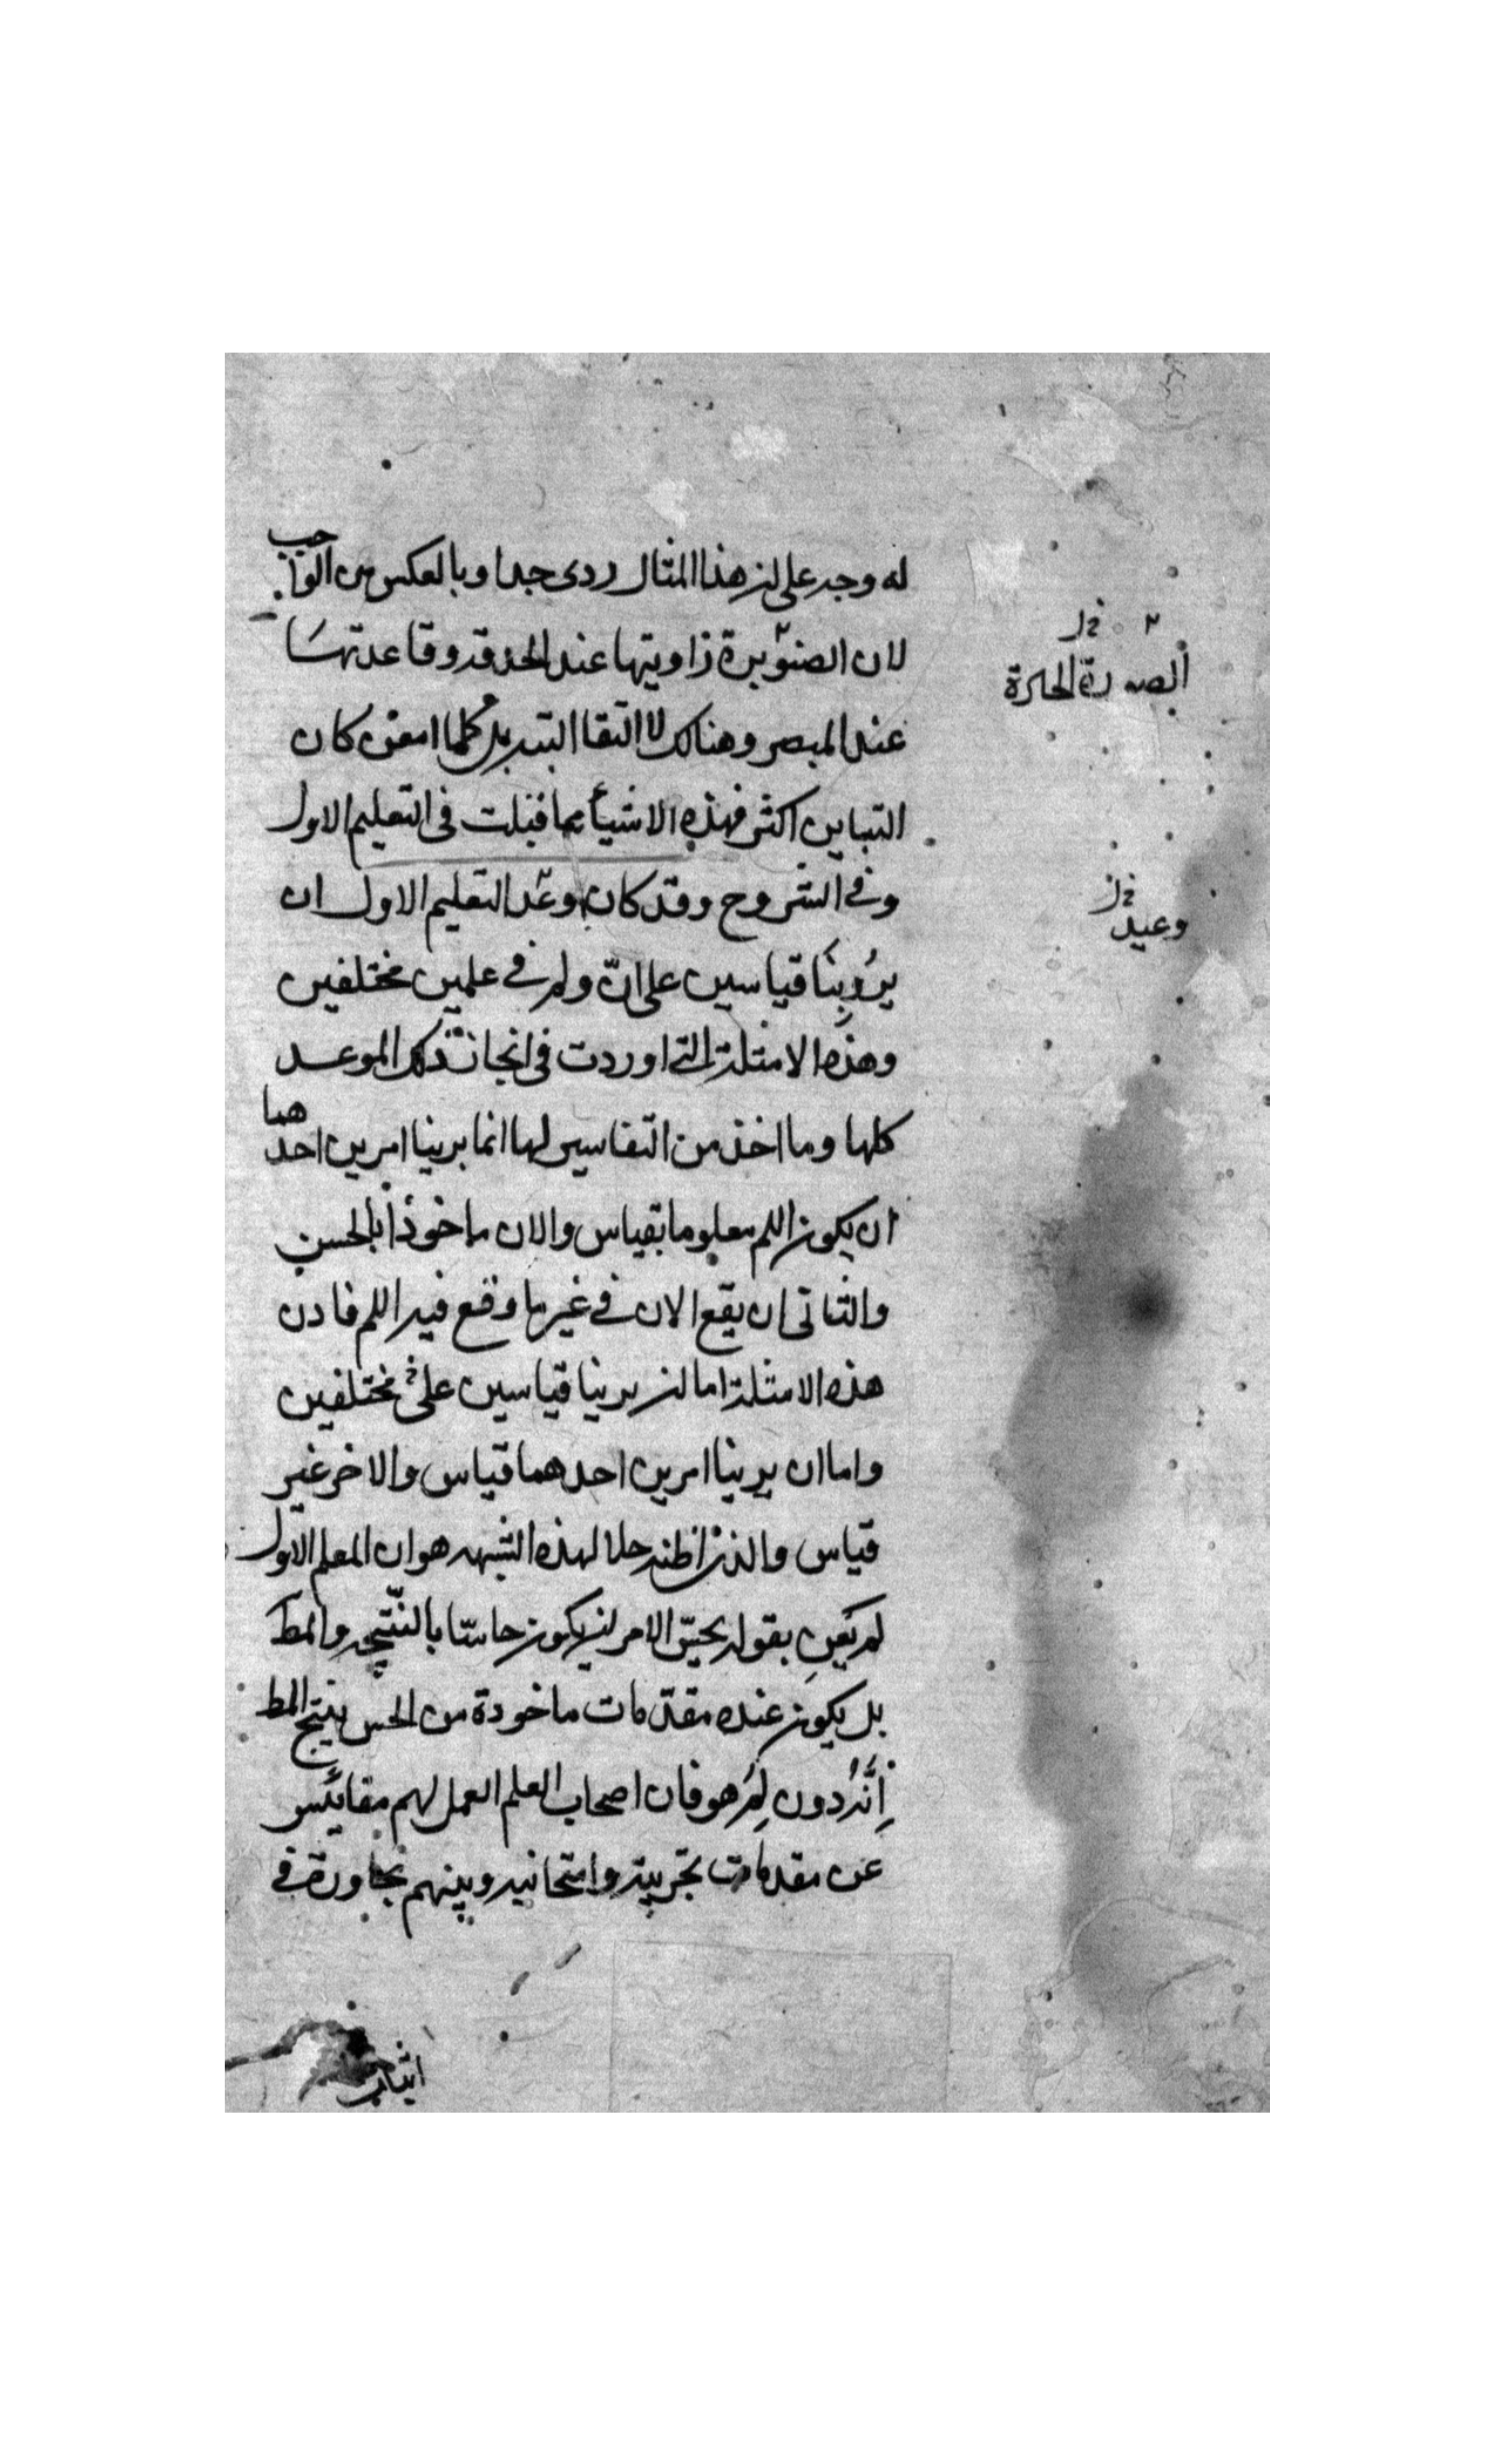 له وجه على ان هذا المثال ردى جدا وبالعكس من الواجب
لان الصنوبرة زاويتها عند الحدقة وقاعدتها
عند المبصر وهناك لا التقا البتة بل كلما امعن كان
التباين اكثر فهذه الاشيأ مما قيلت فى التعليم الاول
وفى الشروح وقد كان وعد التعليم الاول ان
يرُوينا قياسين على انّ ولم فى علمين مختلفين
وهذه الامثلة التى اوردت فى انجاز ذلك الموعد
كلها وما اخذ من التفاسير لها انما يرينا امرين احدهما
ان يكون اللم معلوما بقياس والان ماخوذا بالحس
والثانى ان يقع الان فى غير ما وقع فيه اللم فاذن
هذه الامثلة اما ان يرينا قياسين على مختلفين
واما ان يرينا امرين احدهما قياس والاخر غير
قياس والذى اظنه حلا لهذه الشبهه هو ان المعلم الاول
لم يَعنِ بقوله يحسّ الامر ان يكون حاسّا بالنتيجه والمط
بل يكون عنده مقدّمات ماخوذة من الحس ينتج المط
اِنَّهُ دون لِمَ هو فان اصحاب العلم العمل لهم مقائيس
عن مقدمات تجربية وامتحانيه وبينهم مجاورة فى
الصورة
وعيد